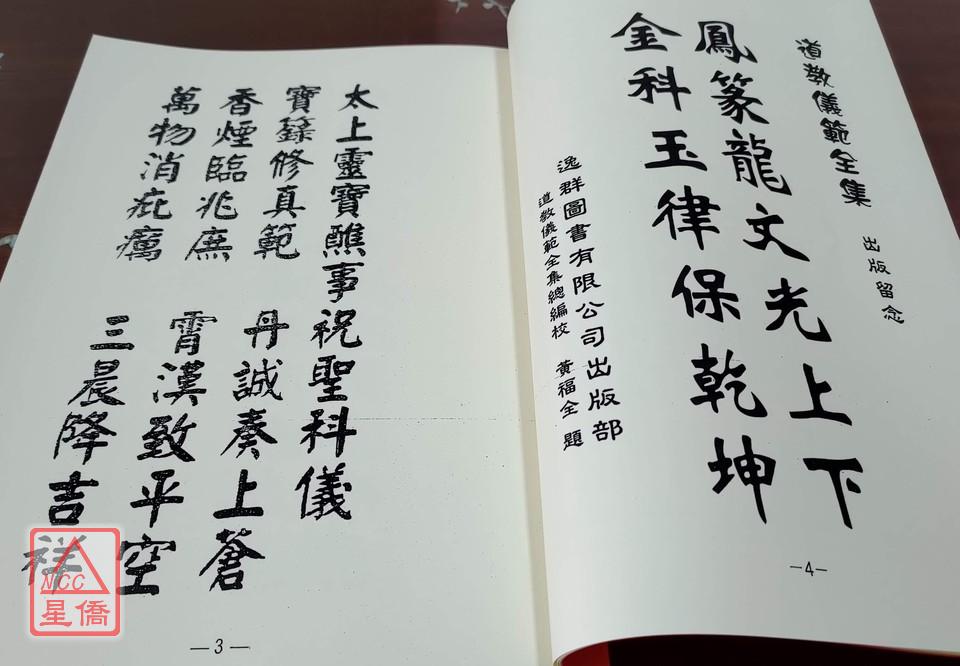 太上靈寶醮事祝聖科儀
寶籙修真範 丹誠奏上蒼
香煙臨兆庶 霄漢致平空
萬物消疵癘 三晨降吉祥
—3—
道教儀範全集 出版留念
鳳篆龍文光上下
金科玉律保乾坤
逸群圖書有限公司出版部
道教儀範全集總編校 黃福全 題
—4—
NCC
星僑